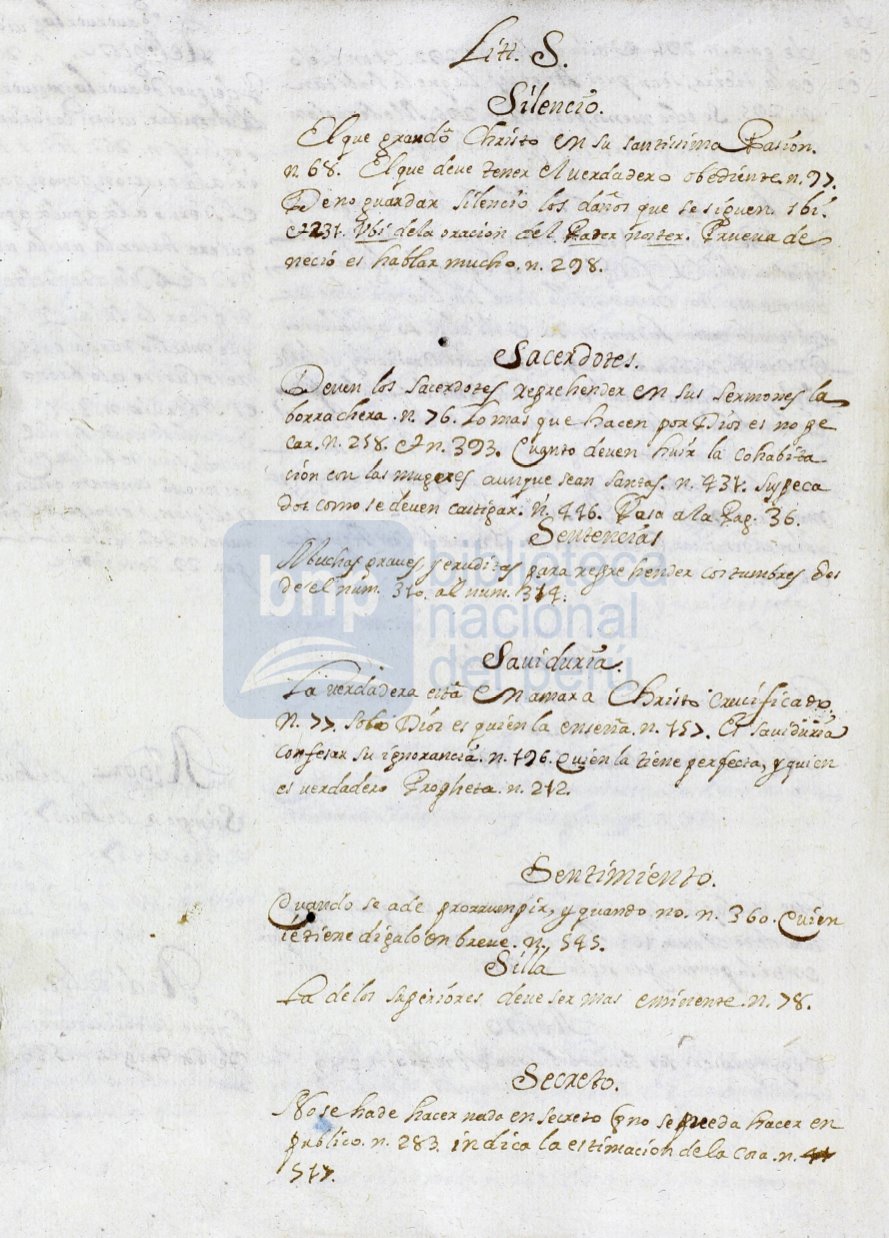 Litt. S.
Silencio.
El que guardó Christo en su santissima Pasion.
n. 68. El que deve tener el verdadero obediente. n. 97.
De no guardar silencio los daños que se siguen. ibi.
231. Ybi de la oracion del Pater noster. Prueva de
necio es hablar mucho. n. 298.
Sacerdotes.
Deven los sacerdotes reprehender en sus sermones la
borrachera. n. 76. Lo mas que hacen por Dios es no pe
car. n. 258. & n. 393. Cuanto deven huir la cohabita
ción con las mugeres aunque sean santas. n. 431. Sus peca
dos como se deven castigar. n. 446. Pasa a la Pag. 36.
Sentencias
Muchas graves y eruditas para reprehender costumbres des
de el núm. 310. al num. 314.
Saviduria.
La verdadera está en amar a Christo crucificado.
n. 77. Solo Dios es quien la enseña. n. 157. Es saviduria
confesar su ignorancia. n. 196. Quien la tiene perfecta, y quien
es verdadero Propheta. n. 212.
Sentimiento.
Cuando se a de prorrumpir, y quando no. n. 360. Quien
le tiene digalo en breve. n. 545.
Silla
La de los superiores deve ser mas eminente. n. 78.
Secreto.
No se ha de hacer nada en secreto q no se pueda hacer en
publico. n. 283. indica la estimacion de la cosa. n.
517.
bnp biblioteca
nacional
del perú